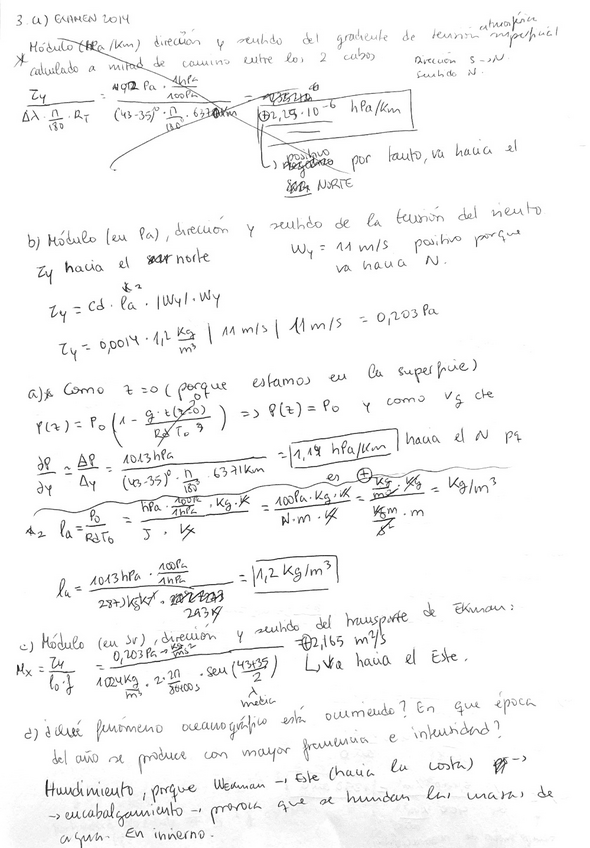 3. a) EXAMEN 2014
Módulo (hPa/km) dirección y sentido del gradiente de tensión atmosférica superficial
* calculado a mitad de camino entre los 2 cabos
Dirección S->N.
Sentido N.
τy / Δλ · π/180 · RT = Pa · 1hPa/100Pa / (43-35)º · π/180 · 6370km = ⊕2,25·10^-6 hPa/km
↳ positivo por tanto, va hacia el
NORTE
b) Módulo (en Pa), dirección y sentido de la tensión del viento
τy hacia el norte
Wy = 11 m/s positivo porque
va hacia N.
τy = Cd · ρa *2 · |Wy| · Wy
τy = 0,0014 · 1,2 kg/m³ |11 m/s| 11 m/s = 0,203 Pa
a)* Como z=0 (porque estamos en la superficie)
P(z) = P0 (1 - g·t(z=0) / Rd T0) => P(z) = P0 y como vg cte
∂P/∂y ≃ ΔP/Δy = 1013hPa / (43-35)º · π/180 · 6371km = 1,14 hPa/km hacia el N pq
es ⊕
*2 ρa = P0/RdT0 = hPa · 100Pa/1hPa · kg · K / J · K = 100Pa · kg · K / N · m · K = kg/ms² · kg / kgm/s² · m = kg/m³
ρa = 1013hPa · 100Pa/1hPa / 287J/kgK · 273K = 1,2 kg/m³
c) Módulo (en Sv), dirección y sentido del transporte de Ekman:
Mx = τy / ρ0·f = 0,203 Pa -> kg/ms² / 1024 kg/m³ · 2 · 2π/86400s · sen((43+35)/2) = ⊕2,165 m²/s
λ media
↳ Va hacia el Este.
d) ¿Qué fenómeno oceanográfico está ocurriendo? En qué época
del año se produce con mayor frecuencia e intensidad?
Hundimiento, porque WEKman -> Este (hacia la costa) ->
-> encabalgamiento -> provoca que se hundan las masas de
agua. En invierno.